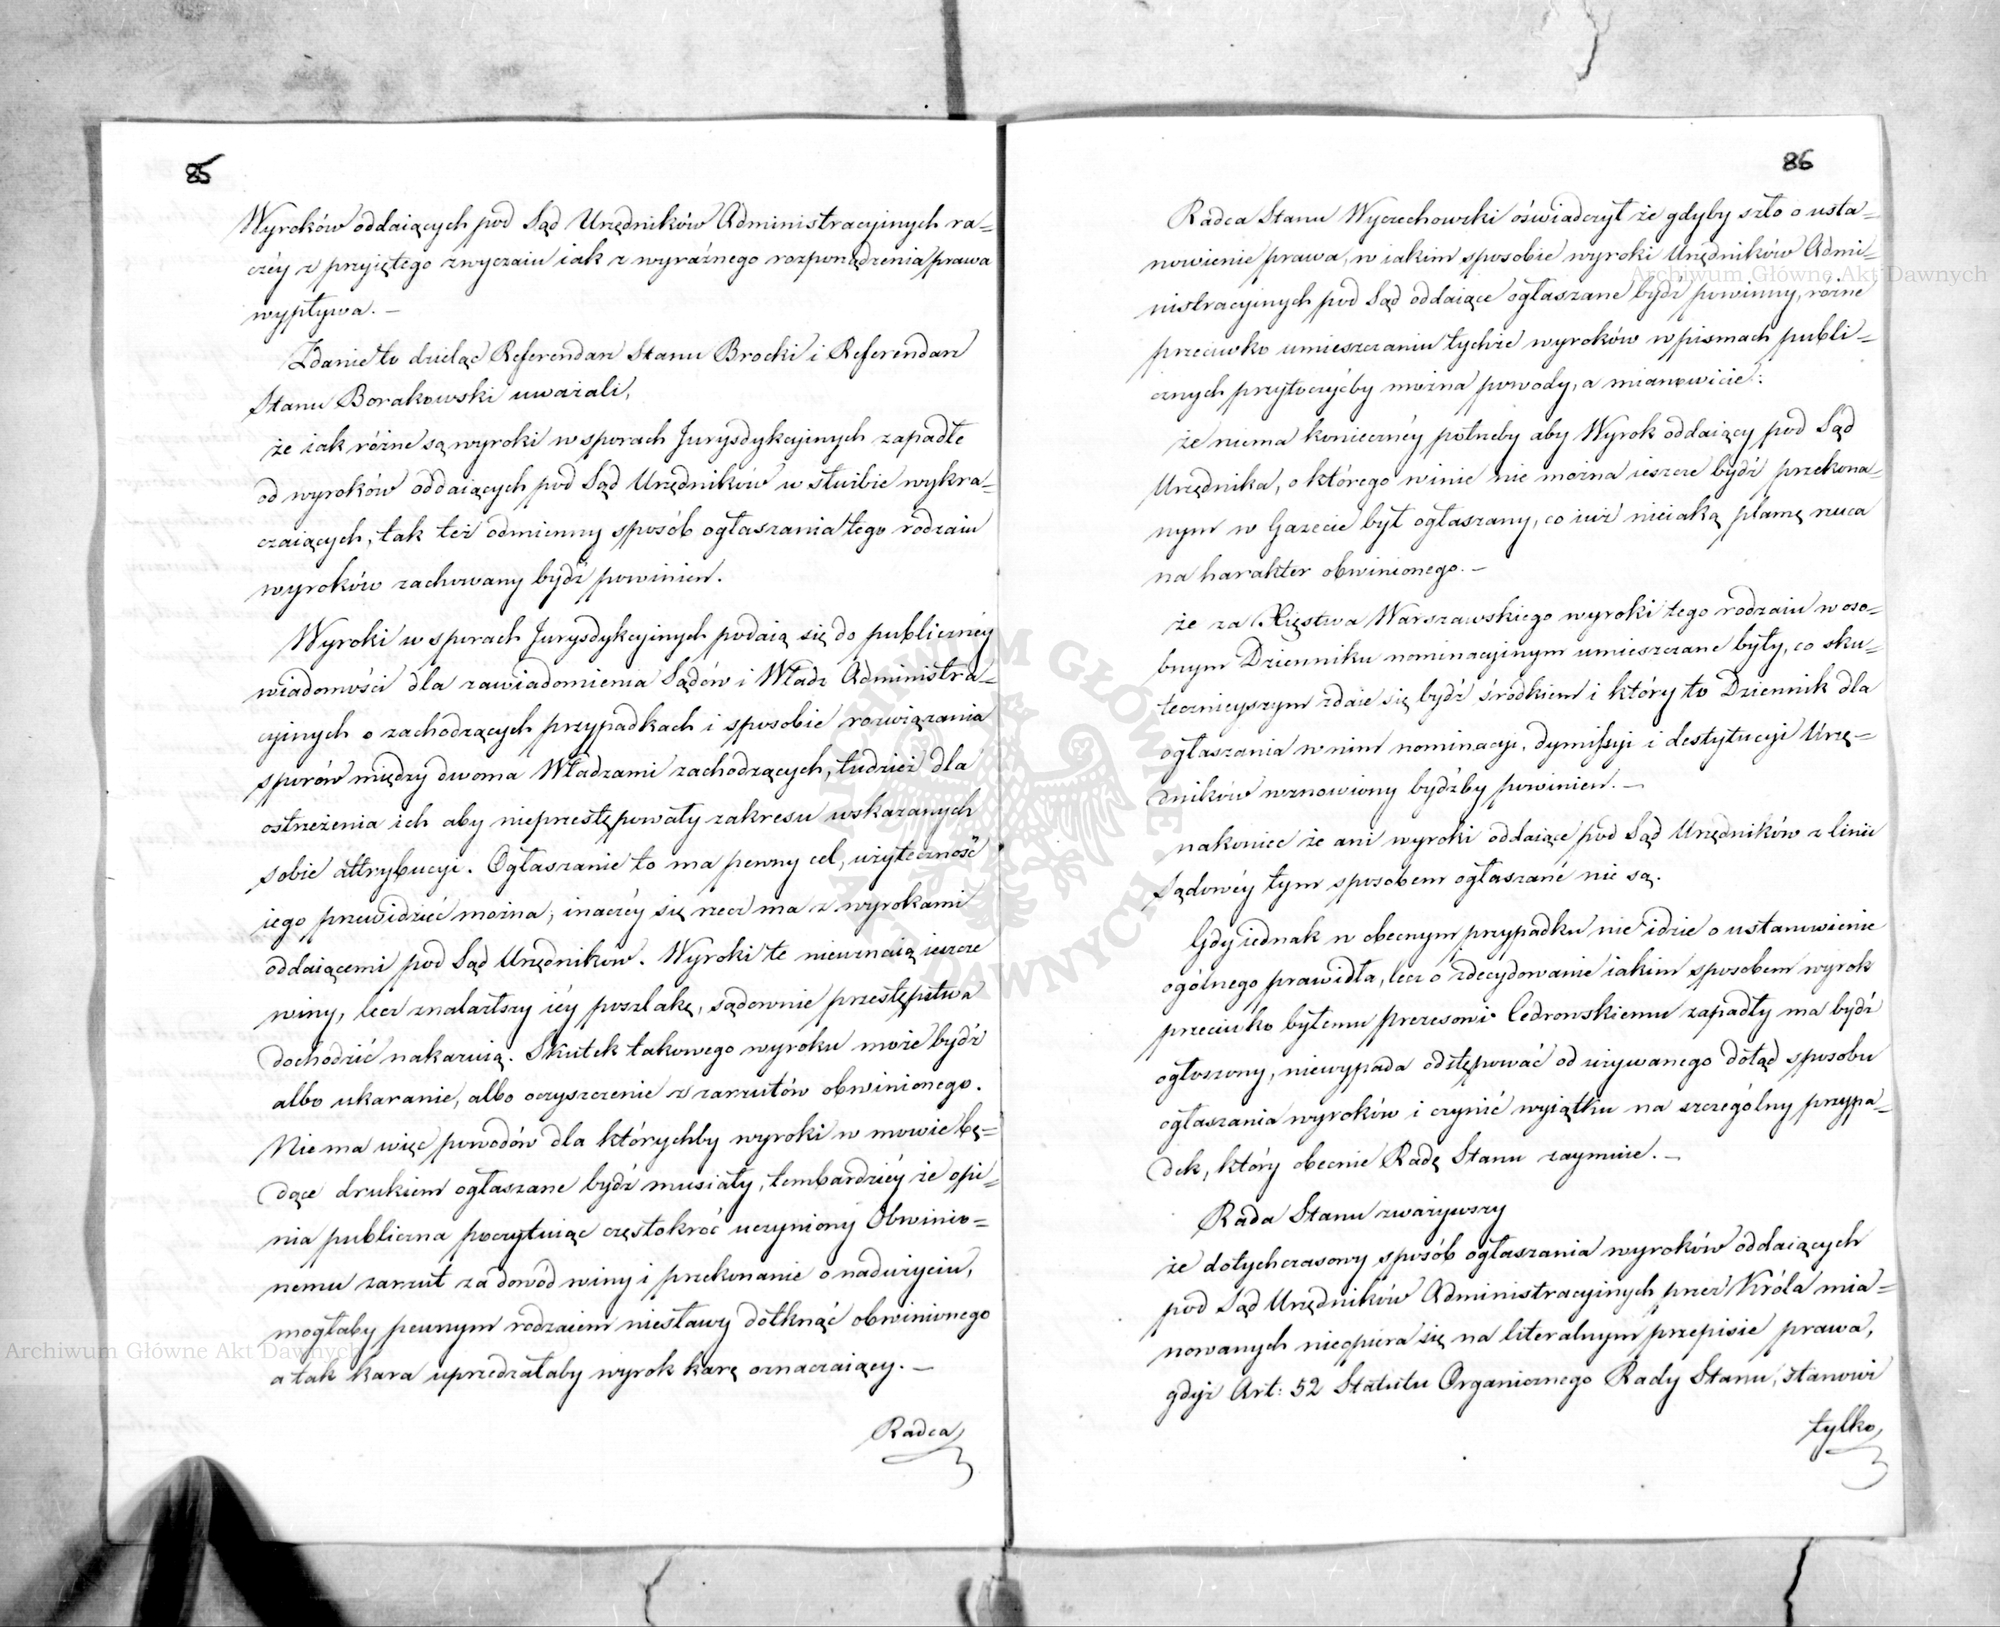 85
Wyroków oddaiących pod Sąd Urzędników Administracyjnych ra=
czéy z przyiętego zwyczaiu iak z wyraźnego rozporządzenia prawa
wypływa. —
Zdanie to dzieląc Referendarz Stanu Brocki i Referendarz
Stanu Borakowski uważali,
że iak różne są wyroki w sporach Jurysdykcyinych zapadłe
od wyroków oddaiących pod Sąd Urzędników w służbie wykra=
czaiących, tak też odmienny sposób ogłaszania tego rodzaiu
wyroków zachowany bydź powinien.
Wyroki w sporach Jurysdykcyinych podaią się do publicznéy
wiadomości dla zawiadomienia Sądów i Władz Administra=
cyinych o zachodzących przypadkach i sposobie rozwiązania
sporów między dwoma Władzami zachodzących, tudzież dla
ostrzeżenia ich aby nieprzestępowały zakresu wskazanych
sobie attrybucyi. Ogłaszanie to ma pewny cel, użyteczność
iego przewidzieć można; inaczéy się rzecz ma z wyrokami
oddaiącemi pod Sąd Urzędników. Wyroki te nieuznaią ieszcze
winy, lecz znalazłszy iéy poszlakę, sądownie przestępstwa
dochodzić nakazuią. Skutek takowego wyroku może bydź
albo ukaranie, albo oczyszczenie z zarzutów obwinionego.
Nie ma więc powodów dla którychby wyroki w mowie bę=
dące drukiem ogłaszane bydź musiały, tembardziéy że opi=
nia publiczna poczytuiąc częstokroć uczyniony Obwinio=
nemu zarzut za dowód winy i przekonanie o nadużyciu,
mogłaby pewnym rodzaiem niesławy dotknąć obwinionego
a tak kara uprzedzałaby wyrok karę oznaczaiący. —
Radca
86
Radca Stanu Wyczechowski oświadczył że gdyby szło o usta=
nowienie prawa, w iakim sposobie wyroki Urzędników Admi=
nistracyinych pod Sąd oddaiące ogłaszane bydź powinny, różne
przeciwko umieszczaniu tychże wyroków w pismach publi=
cznych przytoczyćby można powody, a mianowicie:
że niema konieczney potrzeby aby Wyrok oddaiący pod Sąd
Urzędnika, o którego winie nie można ieszcze bydź przekona=
nym w Gazecie był ogłaszany, co iuż nieiaką plamę rzuca
na harakter obwinionego. —
że za Xięstwa Warszawskiego wyroki tego rodzaiu w oso=
bnym Dzienniku nominacyinym umieszczane były, co sku=
tecznieyszym zdaie się bydź środkiem i który to Dziennik dla
ogłaszania w nim nominacyi, dymissyi i destytucyi Urzę=
dników wznowiony bydźby powinien. —
nakoniec że ani wyroki oddaiące pod Sąd Urzędników z linii
Sądowéy tym sposobem ogłaszane nie są.
Gdy iednak w obecnym przypadku nie idzie o ustanowienie
ogólnego prawidła, lecz o zdecydowanie iakim sposobem wyrok
przeciwko byłemu Prezesowi Cedrowskiemu zapadły ma bydź
ogłoszony, niewypada odstępować od używanego dotąd sposobu
ogłaszania wyroków i czynić wyiątku na szczególny przypa=
dek, który obecnie Radę Stanu zaymuie. —
Rada Stanu zważywszy
że dotychczasowy sposób ogłaszania wyroków oddaiących
pod Sąd Urzędników Administracyinych przez Króla mia=
nowanych nieopiera się na literalnym przepisie prawa,
gdyż Art: 52 Statutu Organicznego Rady Stanu, stanowi
tylko
Archiwum Główne Akt Dawnych
Archiwum Główne Akt Dawnych
ARCHIWUM GŁÓWNE AKT DAWNYCH